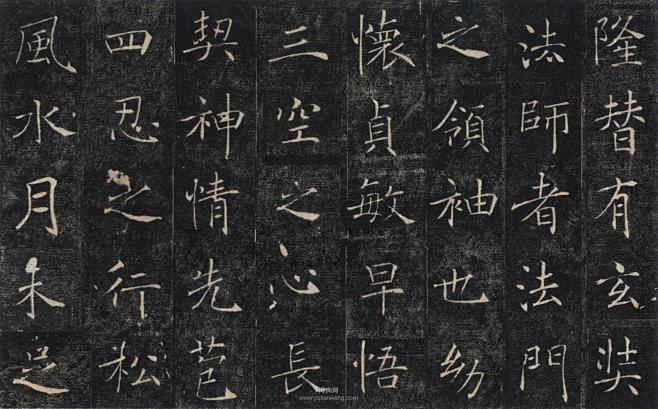 隆替有玄奘
法師者法門
之領袖也幼
懷貞敏早悟
三空之心長
契神情先苞
四忍之行松
風水月未足
www.cidianwang.com